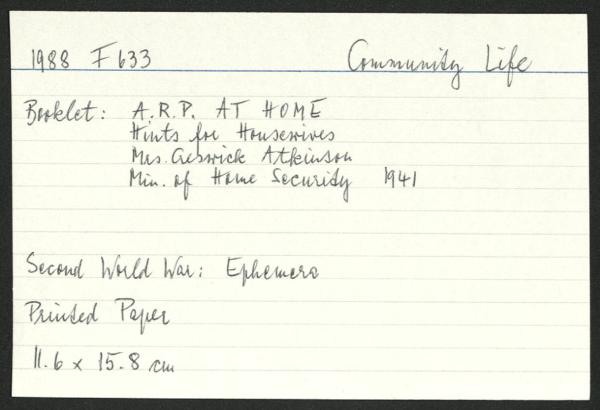 1988 F633 Community Life
Booklet: A.R.P. AT HOME
Hints for Housewives
Mrs. Creswick Atkinson
Min. of Home Security 1941
Second World War: Ephemera
Printed Paper
11.6 x 15.8 cm